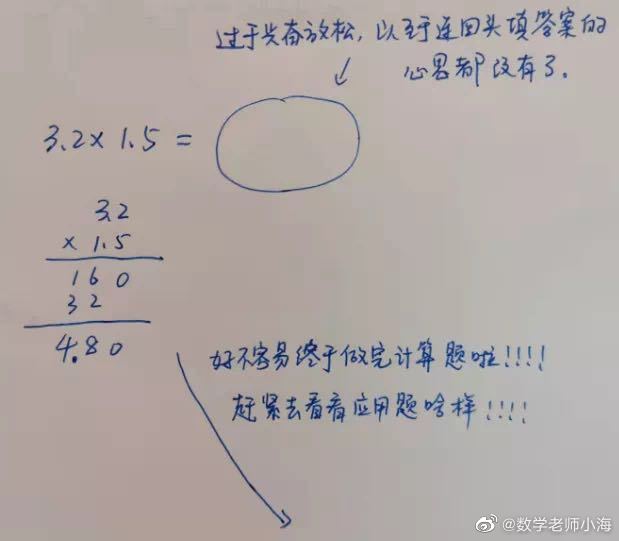 过于兴奋放松,以至于连回头填答案的
心思都没有了.
3.2×1.5=
3.2
×1.5
160
32
4.80
好不容易终于做完计算题啦!!!!
赶紧去看看应用题啥样!!!!
@数学老师小海